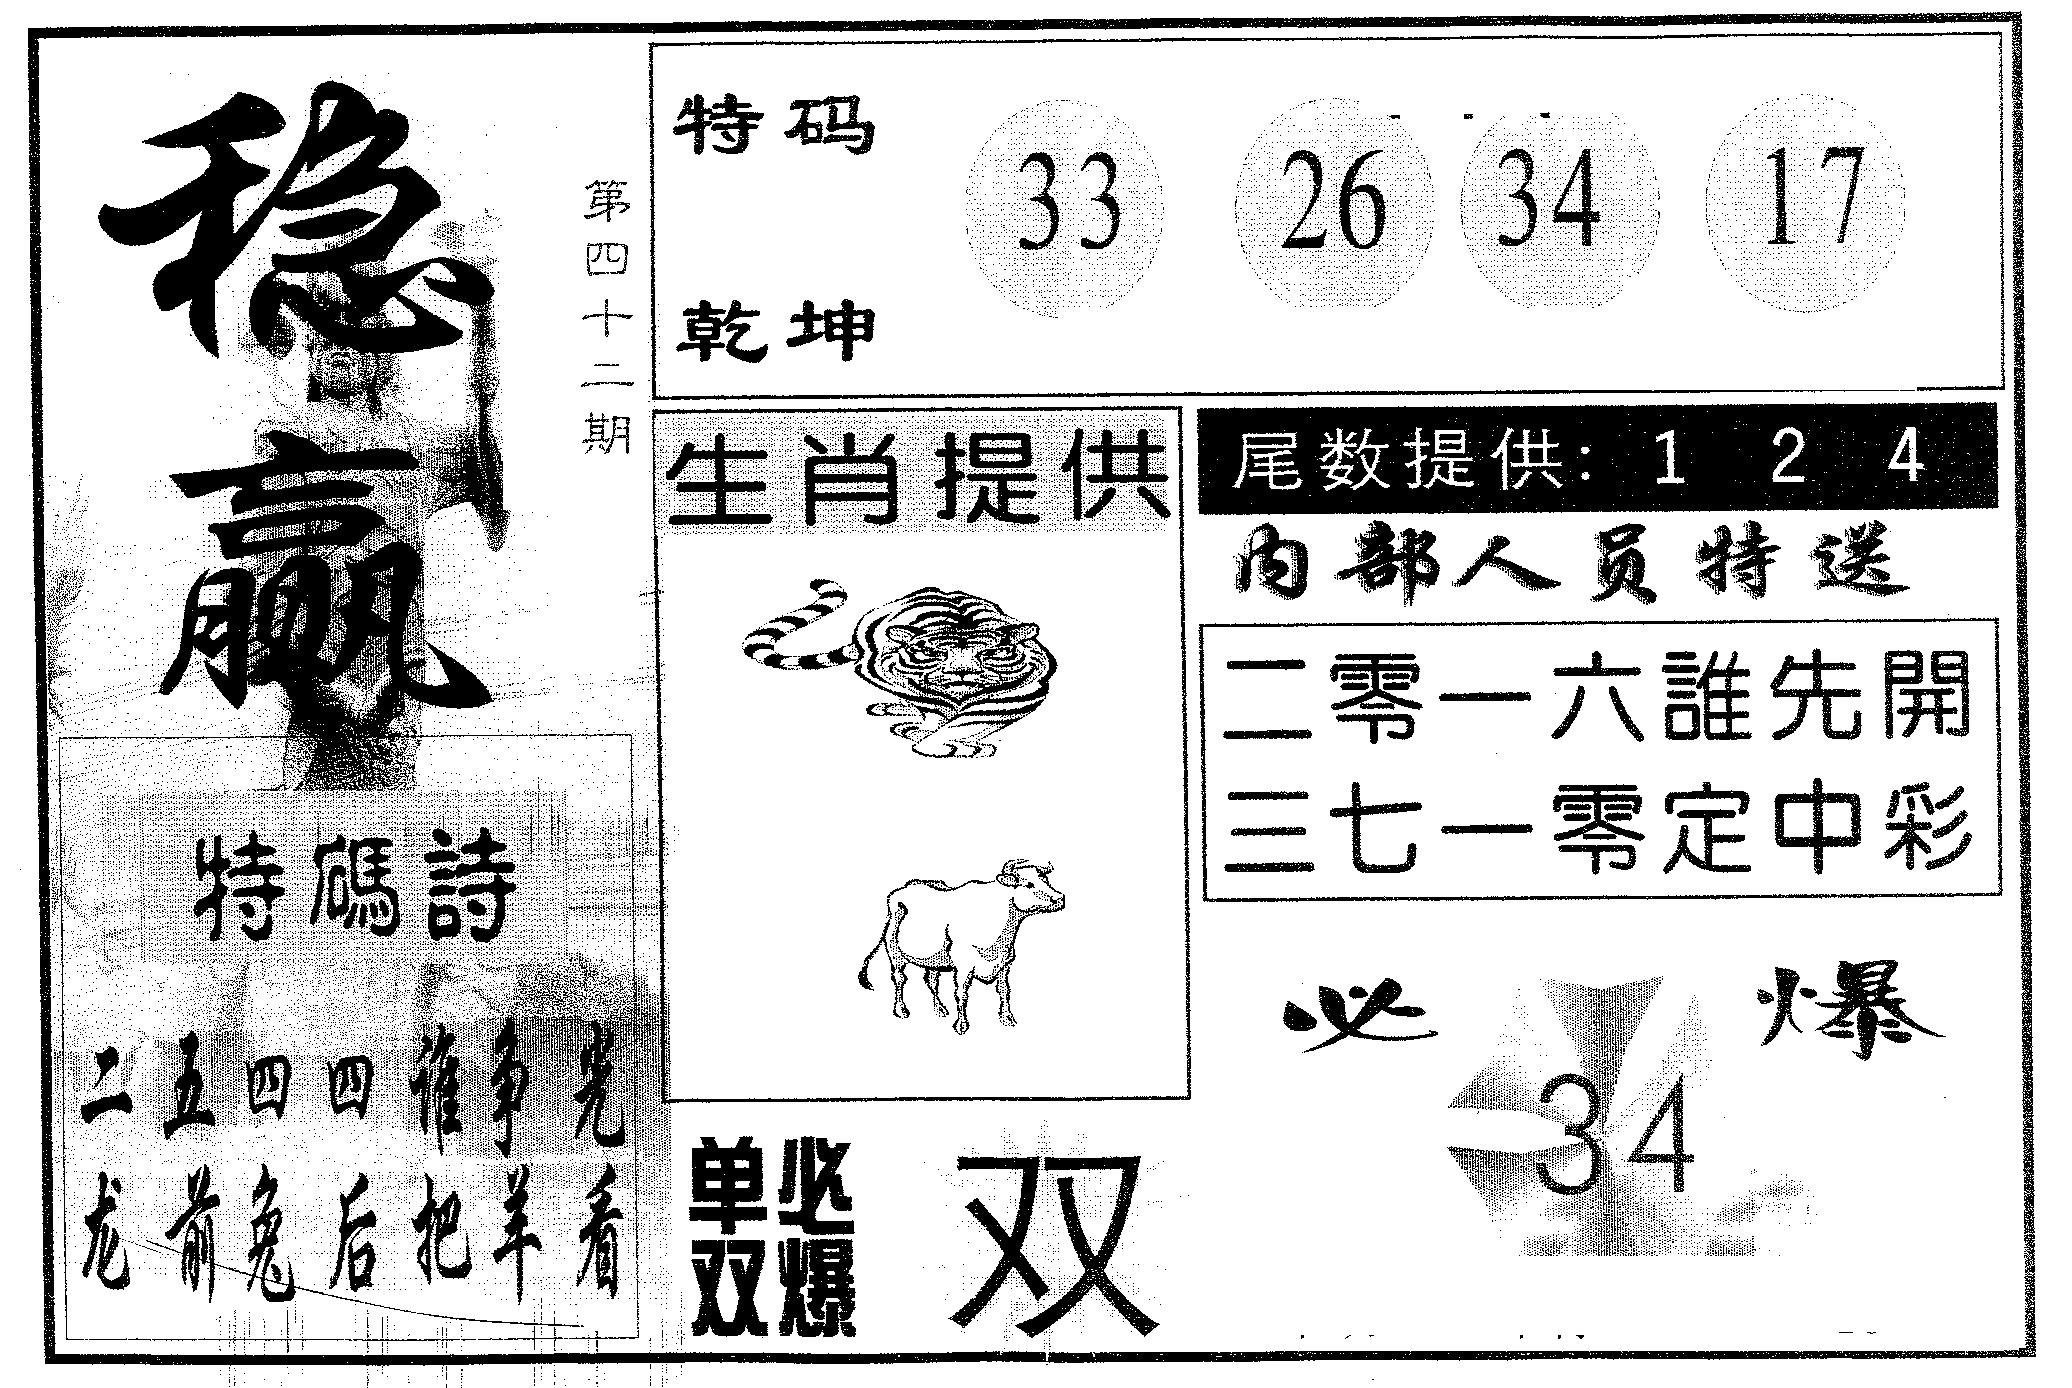 稳赢
第四十二期
特码
乾坤
33 26 34 17
生肖提供
尾数提供: 1 2 4
内部人员特送
二零一六誰先開
三七一零定中彩
特碼詩
二五四四谁争光
龙前兔后把羊看
单双
必爆
双
必爆
34